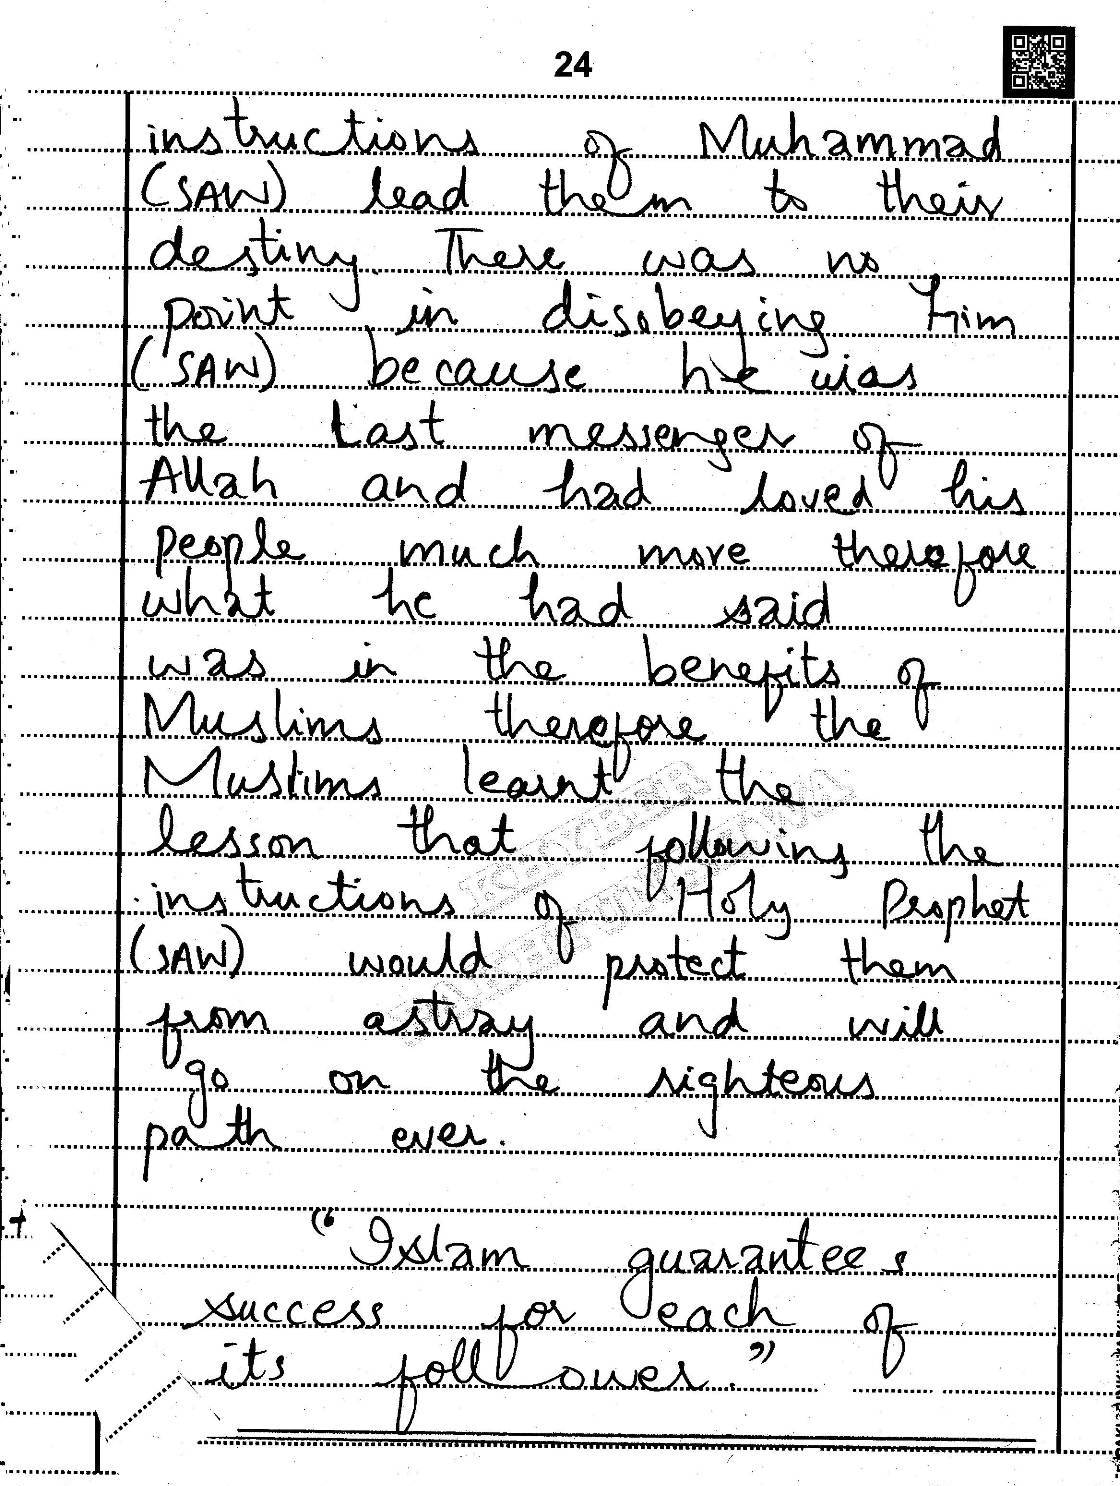 24
instructions of Muhammad
(SAW) lead them to their
destiny. There was no
point in disobeying him
(SAW) because he was
the Last messenger of
Allah and had loved his
people much more therefore
what he had said
was in the benefits of
Muslims therefore the
Muslims learnt the
lesson that following the
instructions of Holy Prophet
(SAW) would protect them
from astray and will
go on the righteous
path ever.
"Islam guarantees
success for each of
its follower."
KHYBER